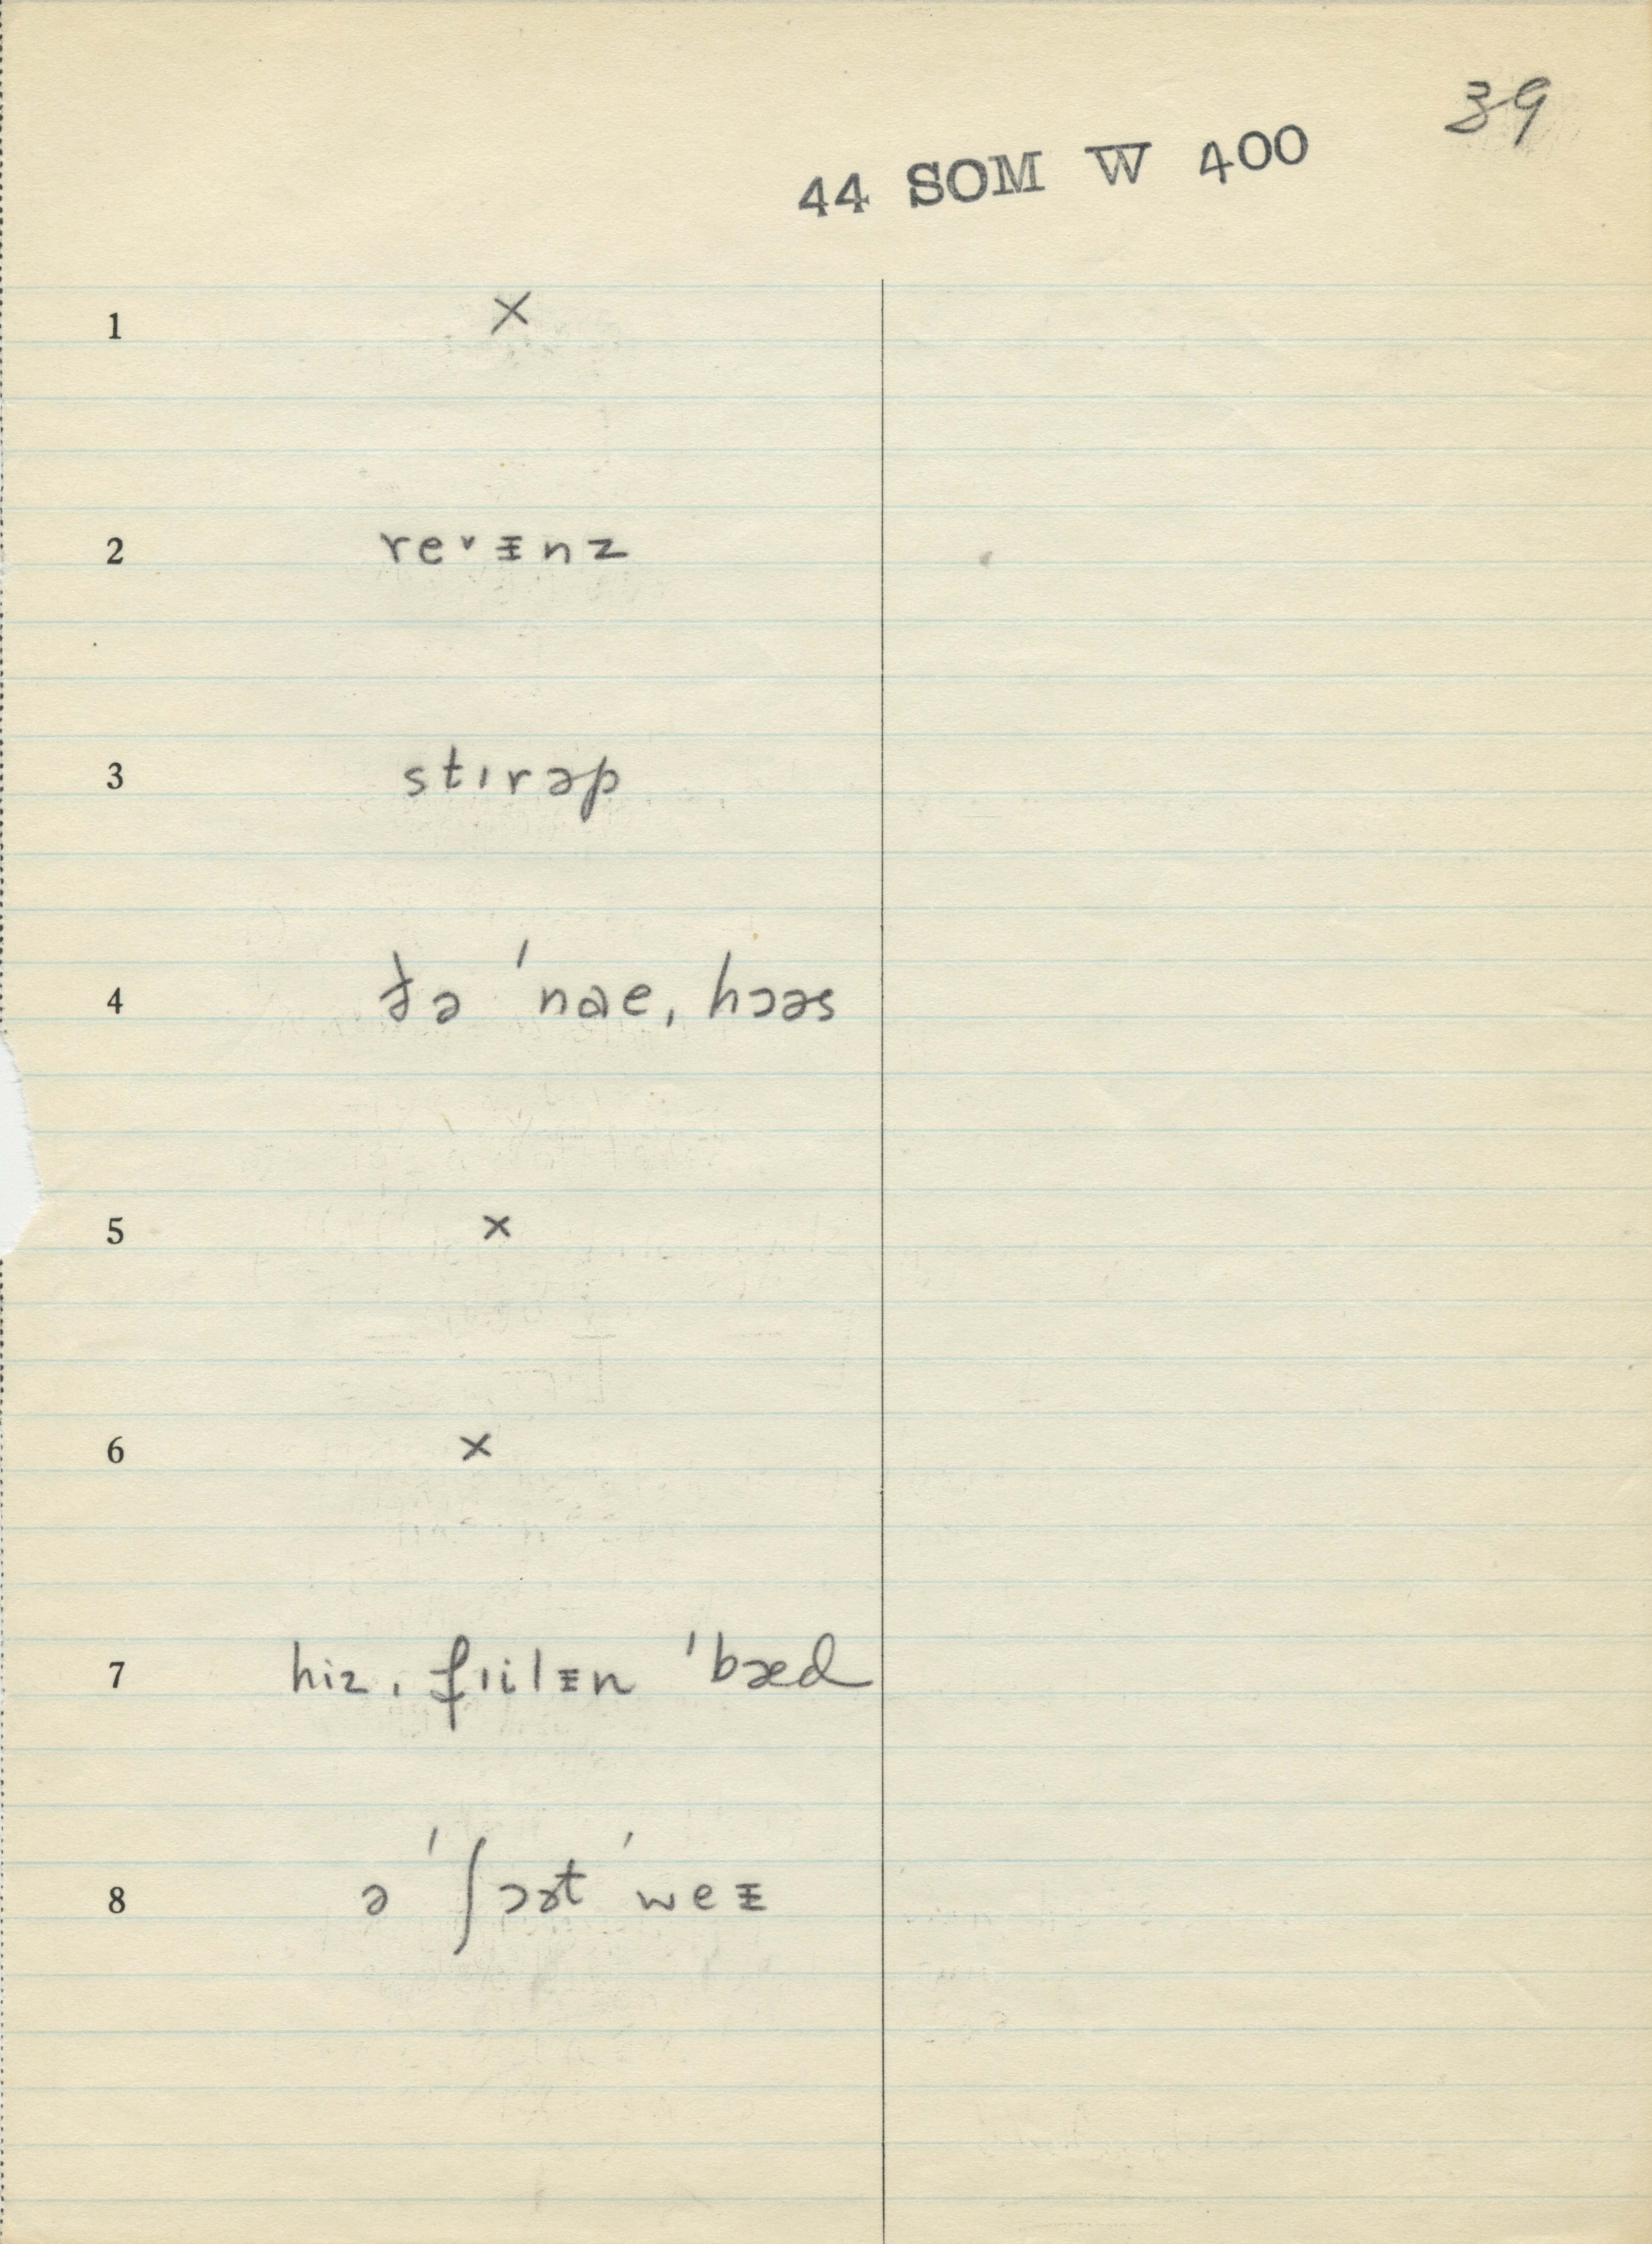 39
44 SOM W 400
1 ×
2 re˅ᵻnz
3 stɪrəp
4 ðə ˈnɑeˌhɔəs
5 ×
6 ×
7 hizˌfɪilᵻn ˈbæd
8 ə ˈʃɔɚt ˈweᵻ